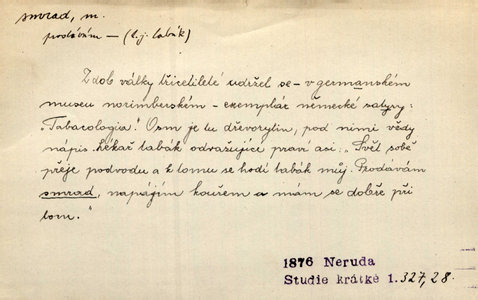 smrad, m.
prodávám — (t.j. tabák)
Z dob války třicetileté udržel se – v germanském
museu norimberském – exemplár německé satyry:
„Tabacologia". Osm je tu dřevorytin, pod nimi vždy
nápis. Lékař tabák odražující praví asi: „Svět sobě
přeje podvodu a k tomu se hodí tabák můj. Prodávám
smrad, napájím kouřem a mám se dobře při
tom."
1876 Neruda
Studie krátké 1.327,28.